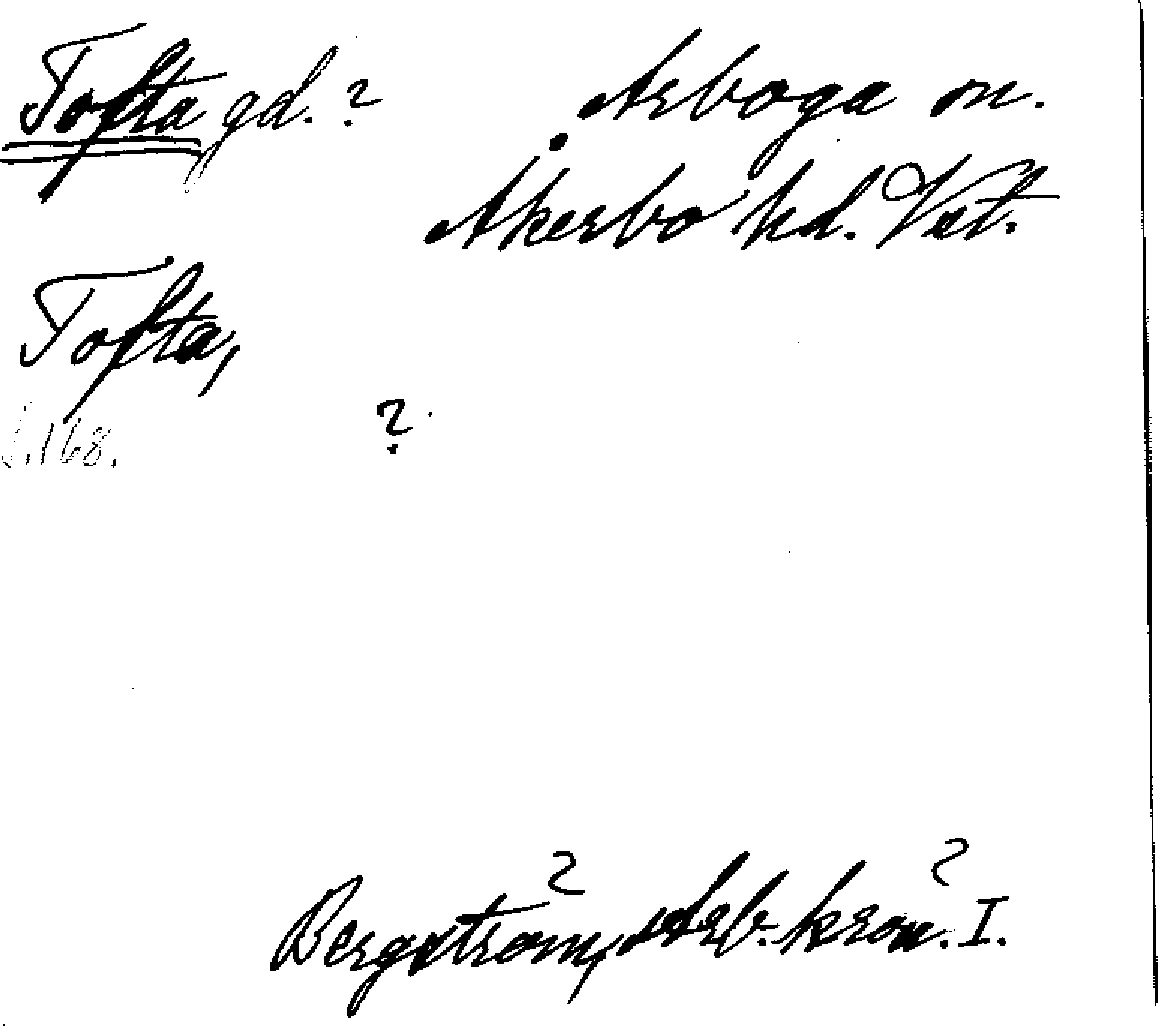 Tofta gd. ? Arboga sn.
Åkerbo hd. Vst.
Tofta,
?
s.168.
Bergström, Arb. krön. I.